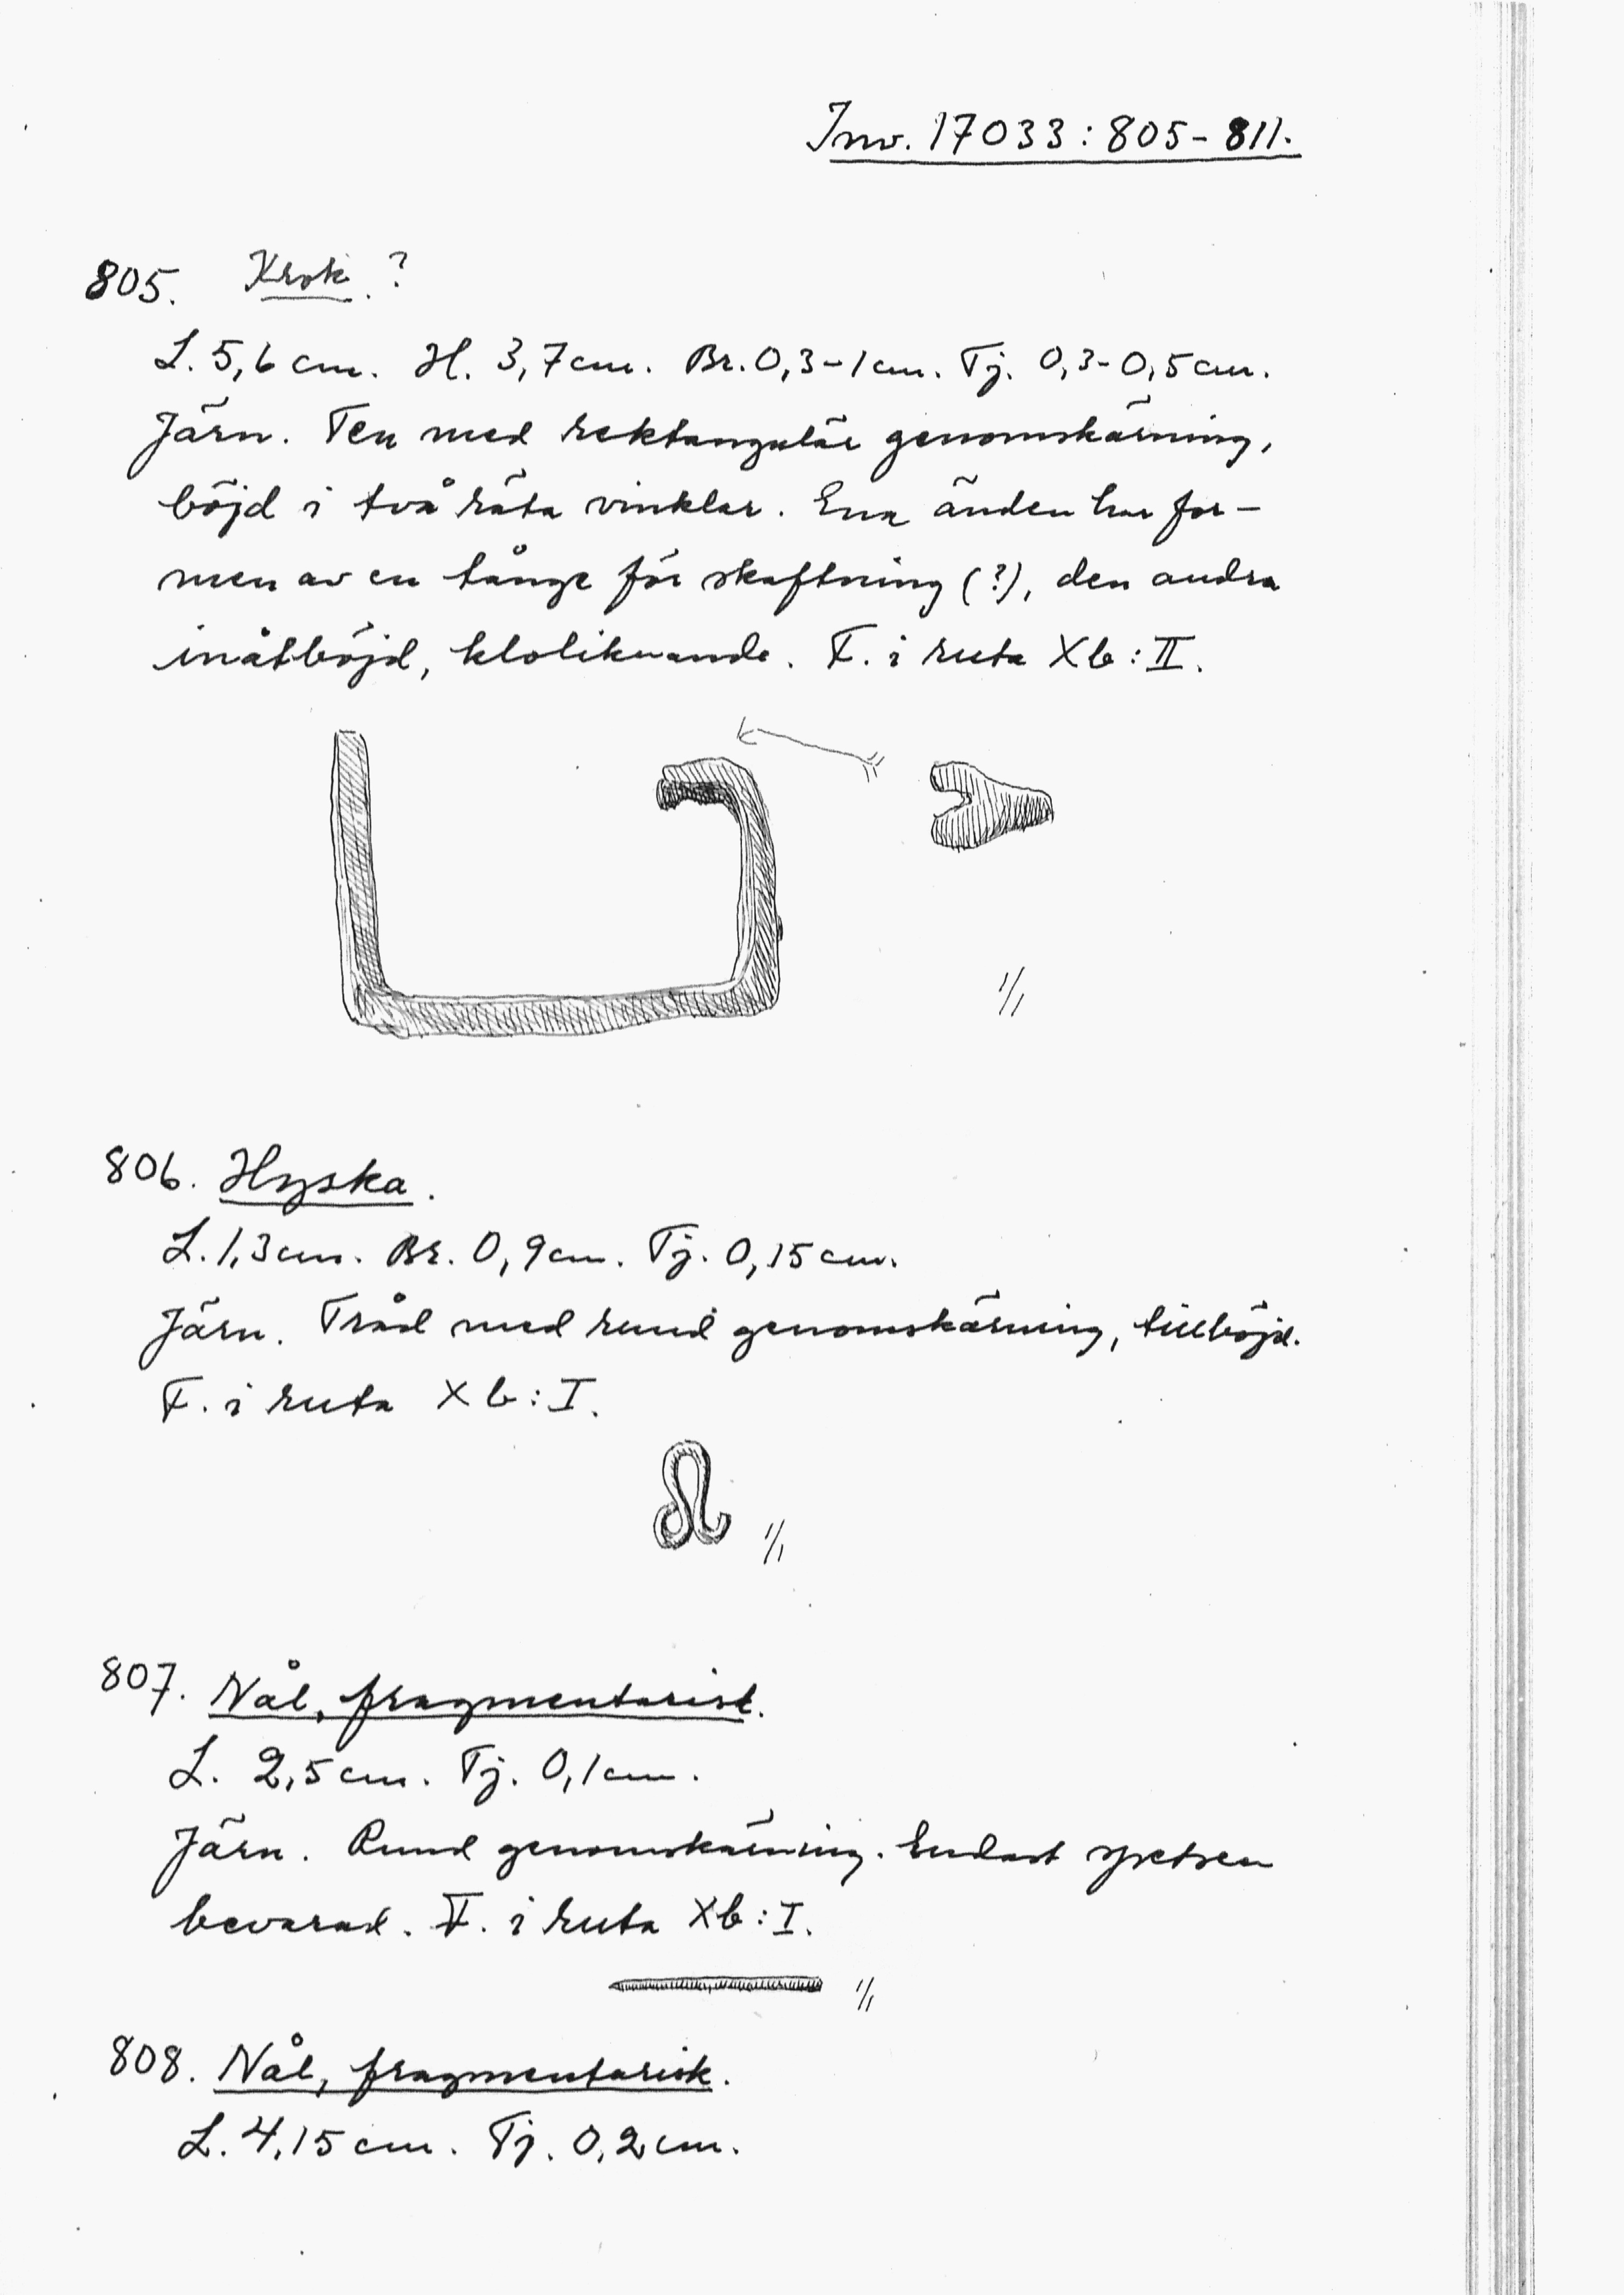 Inv. 17033: 805-811.
805. Krok.?
L. 5,6 cm. H. 3,7 cm. Br. 0,3-1 cm. Tj. 0,3-0,5 cm.
Järn. Ten med rektangulär genomskärning,
böjd i två räta vinklar. Ena änden har for-
men av en tånge för skaftning (?), den andra
inåtböjd, kloliknande. F. i ruta Xb: II.
1/1
806. Hyska.
L. 1,3 cm. Br. 0,9 cm. Tj. 0,15 cm.
Järn. Tråd med rund genomskärning, tillböjd.
F. i ruta Xb: I.
1/1
807. Nål, fragmentarisk.
L. 2,5 cm. Tj. 0,1 cm.
Järn. Rund genomskärning. Endast spetsen
bevarad. F. i ruta Xb: I.
1/1
808. Nål, fragmentarisk.
L. 4,15 cm. Tj. 0,2 cm.